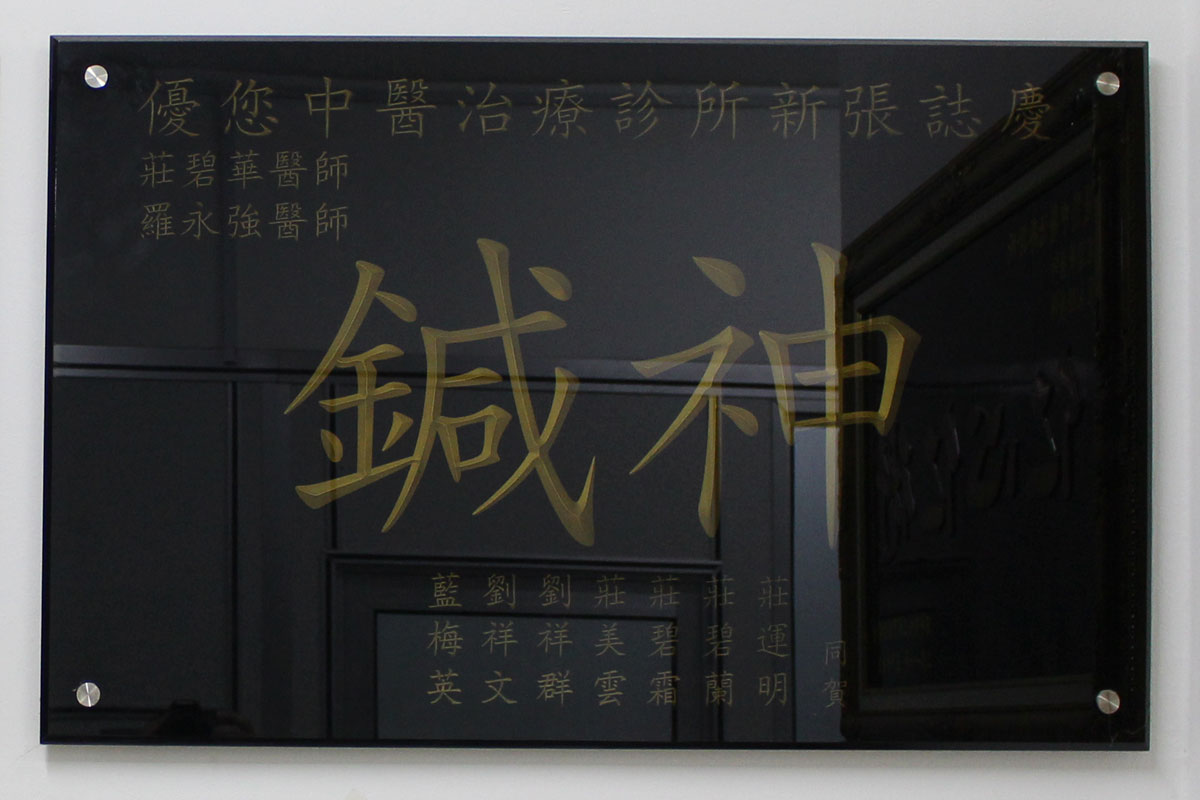 優您中醫治療診所新張誌慶
莊碧華醫師
羅永強醫師
鍼神
藍梅英
劉祥文
劉祥群
莊美雲
莊碧霜
莊碧蘭
莊運明
同賀